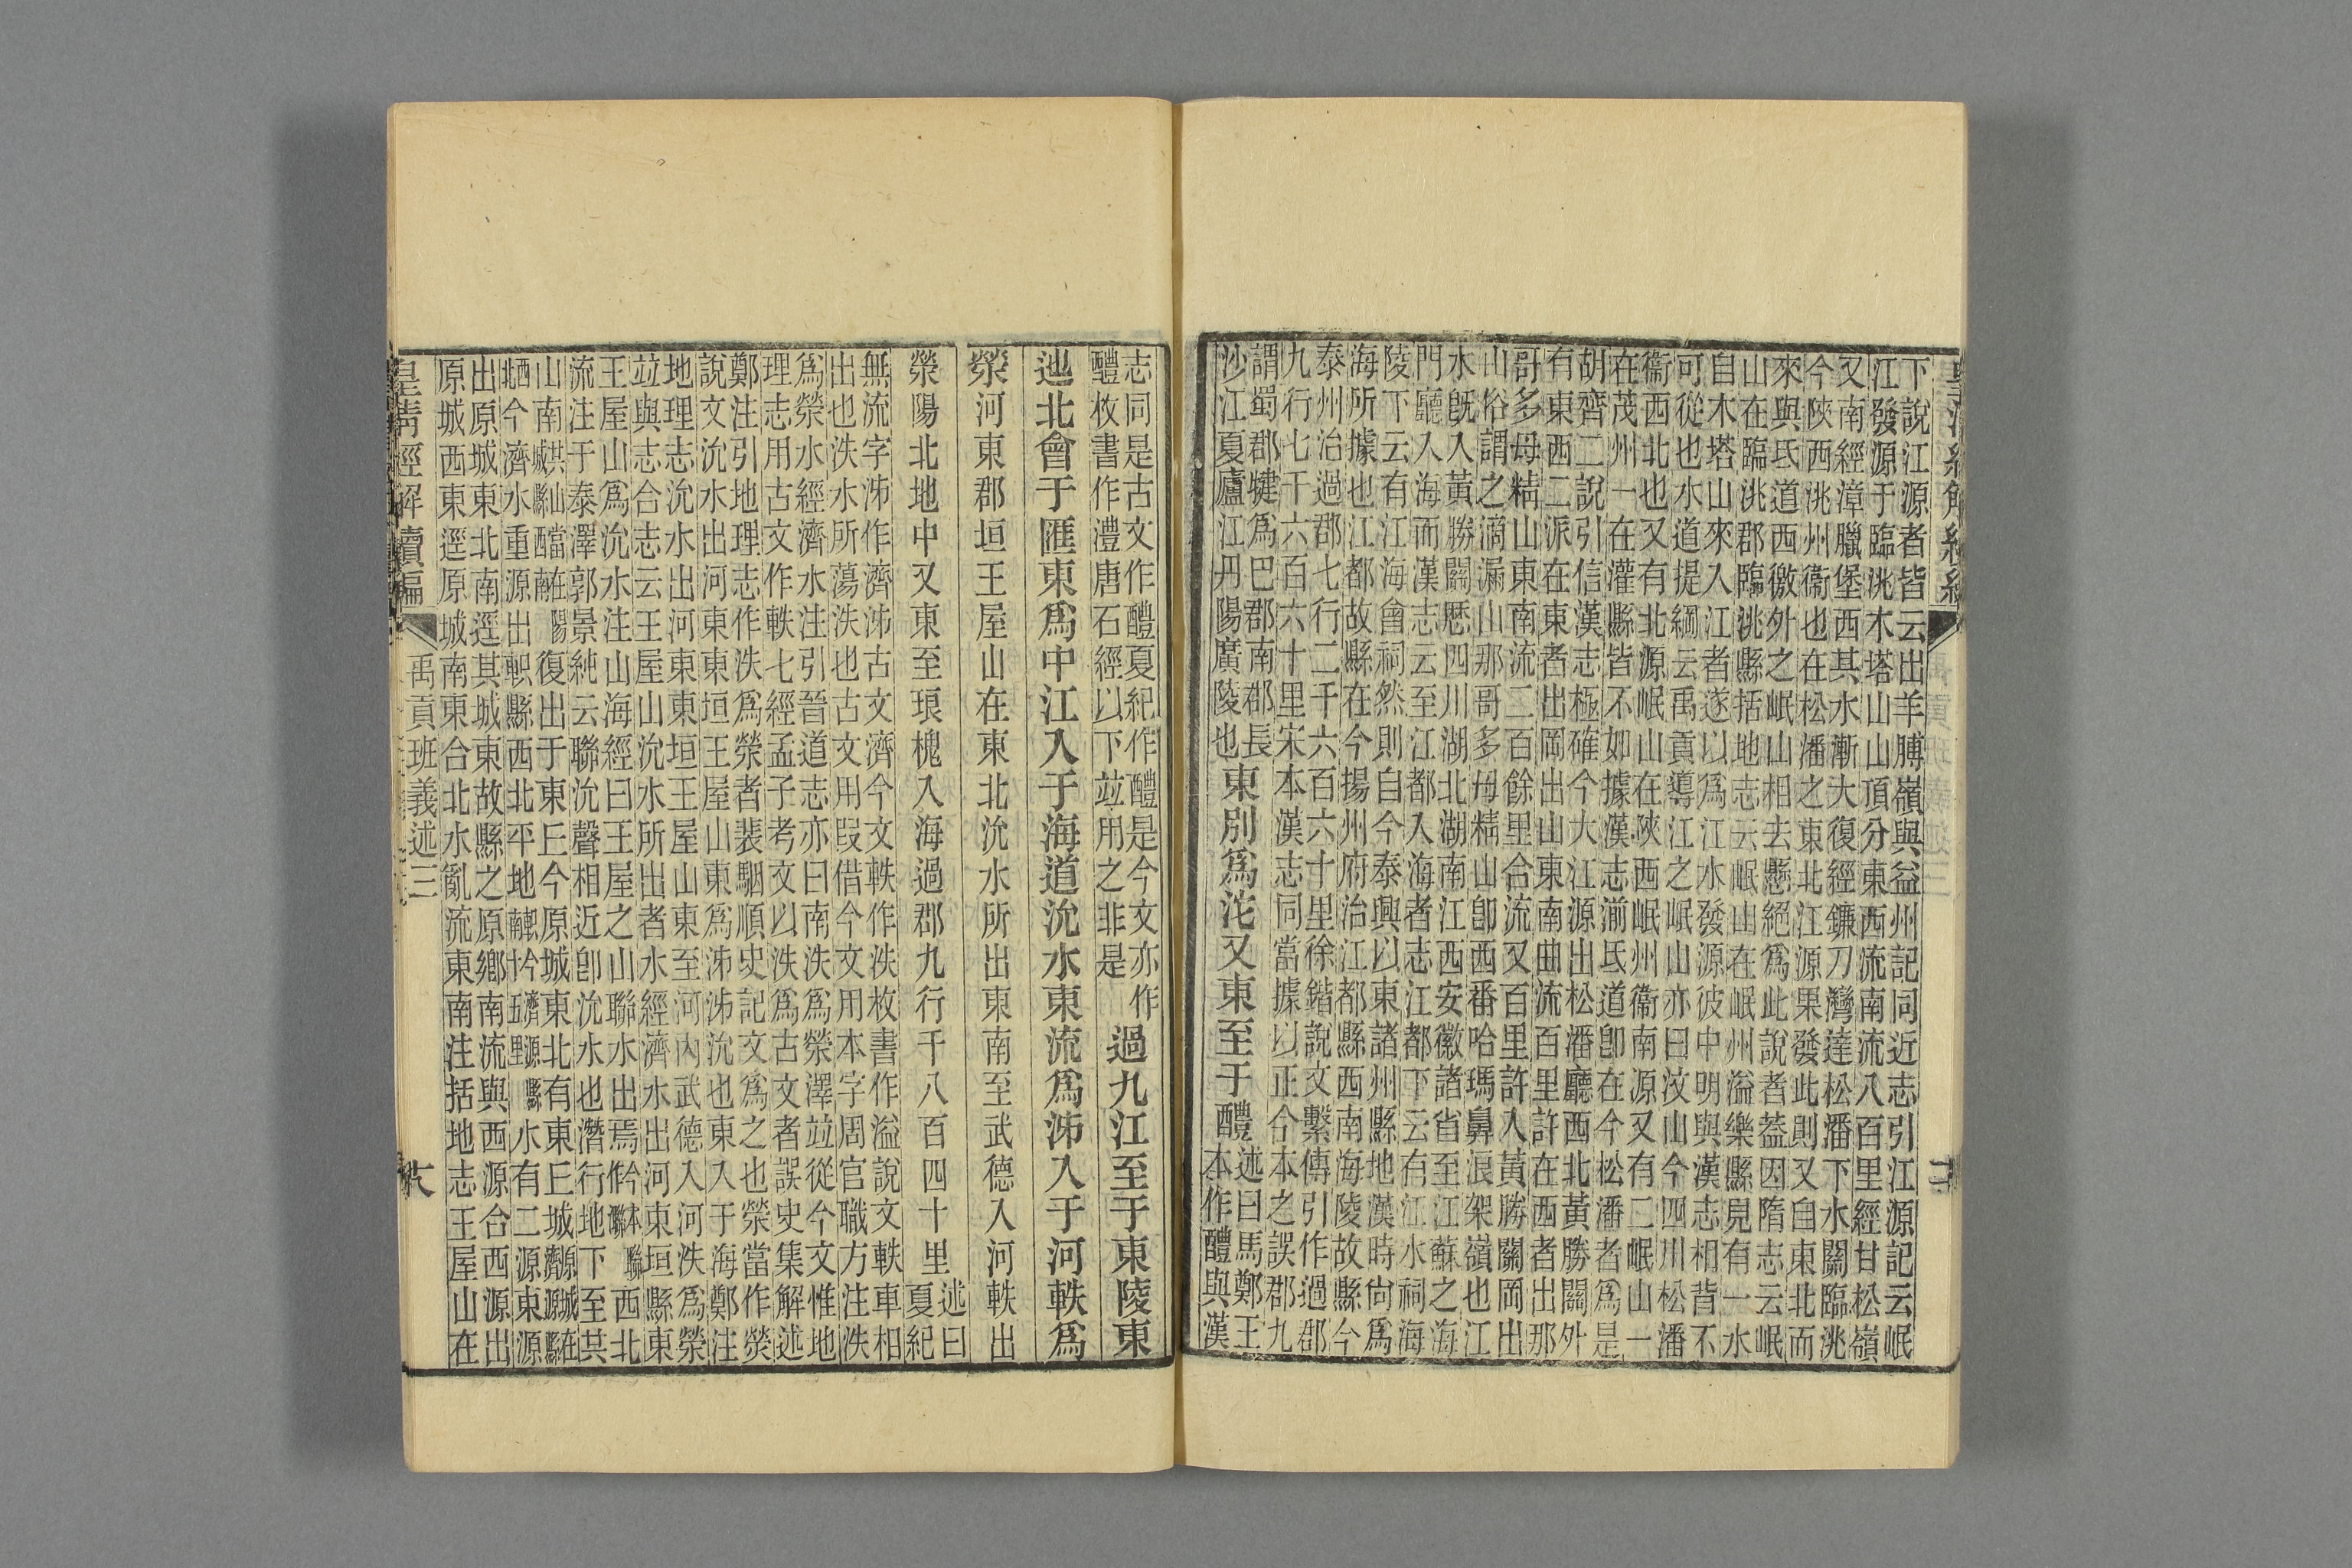 下說江源者皆云出羊膊嶺與益州記同近志引江源記云岷
江發源于臨洮木塔山山頂分東西流南流八百里經甘松嶺
又南經漳臘堡西其水漸大復經鐮刀灣達松潘下水關臨洮
今陝西洮州衞也在松潘之東北江源果發此則又自東北而
來與氐道西徼外之岷山相去懸絕爲此說者葢因隋志云岷
山在臨洮郡臨洮縣括地志云岷山在岷州溢樂縣見有一水
自木塔山來入江者遂以爲江水發源彼中明與漢志相背不
可從也水道提綱云禹貢導江之岷山亦曰汶山今四川松潘
衞西北也又有北源岷山在陝西岷州衞南源又有三岷山一
在茂州一在灌縣皆不如據漢志湔氐道卽在今松潘者爲是
胡齊二說引信漢志極確今大江源出松潘廳西北黃勝關外
有東西二派在東者出岡出山東南曲流百里許在西者出那
哥多母精山東南流二百餘里合流又百里許入黃勝關岡出
山俗謂之滴漏山那哥多母精山卽西番哈瑪鼻浪架嶺也江
水旣入黃勝關厯四川湖北湖南江西安徽諸省至江蘇之海
門廳入海而漢志云至江都入海者志江都下云有江水祠海
陵下云有江海會祠然則自今泰興以東諸州縣地漢時尙爲
海所據也江都故縣在今揚州府治江都縣西南海陵故縣今
泰州治過郡七行二千六百六十里徐鍇說文繫傳引作過郡
九行七千六百六十里宋本漢志同當據以正今本之誤郡九
謂蜀郡犍爲巴郡南郡長
沙江夏廬江丹陽廣陵也
東別爲沱又東至于醴
述曰馬鄭王
本作醴與漢
志同是古文作醴夏紀作醴是今文亦作
醴枚書作澧唐石經以下竝用之非是
過九江至于東陵東
迆北會于匯東爲中江入于海道沇水東流爲泲入于河軼爲
滎河東郡垣王屋山在東北沇水所出東南至武德入河軼出
滎陽北地中又東至琅槐入海過郡九行千八百四十里
述曰
夏紀
無流字泲作濟泲古文濟今文軼作泆枚書作溢說文軼車相
出也泆水所蕩泆也古文用叚借今文用本字周官職方注泆
爲滎水經濟水注引晉道志亦曰南泆爲滎澤竝從今文惟地
理志用古文作軼七經孟子考文以泆爲古文者誤史集解述
鄭注引地理志作泆爲滎者裴駰順史記文爲之也滎當作熒
說文沇水出河東東垣王屋山東爲泲泲沇也東入于海鄭注
地理志沇水出河東東垣王屋山東至河內武德入河泆爲滎
竝與志合志云王屋山沇水所出者水經濟水出河東垣縣東
王屋山爲沇水注山海經曰王屋之山聯水出焉今本作聯西北
流注于泰澤郭景純云聯沇聲相近卽沇水也潛行地下至共
山南復出于東丘今原城東北有東丘城源城在濟源縣
西北今濟水重源出軹縣西北平地軹今濟源縣南十五里水有二源東源
出原城東北南逕其城東故縣之原鄉南流與西源合西源出
原城西東逕原城南東合北水亂流東南注括地志王屋山在
皇清經解續編 禹貢班義述三